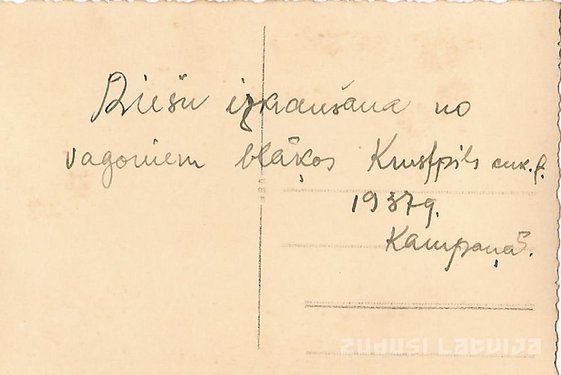 Biešu izkraušana no
vagoniem blāķos Krustpils cuk. f.
1937g.
Kampaņā.
zudusi Latvija